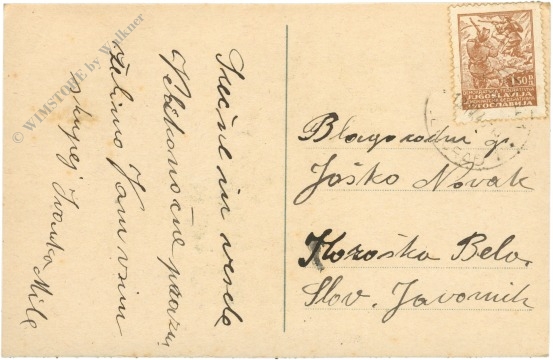 Srečne in vesele
Velikonočne praznike
želimo Vam vsem
skupaj Ivanka Mile
Blagorodni g.
Joško Novak
Koroška Bela
Slov. Javornik
1.50
JUGOSLAVIJA
ЈУГОСЛАВИЈА
© WIMSTORE by Walkner